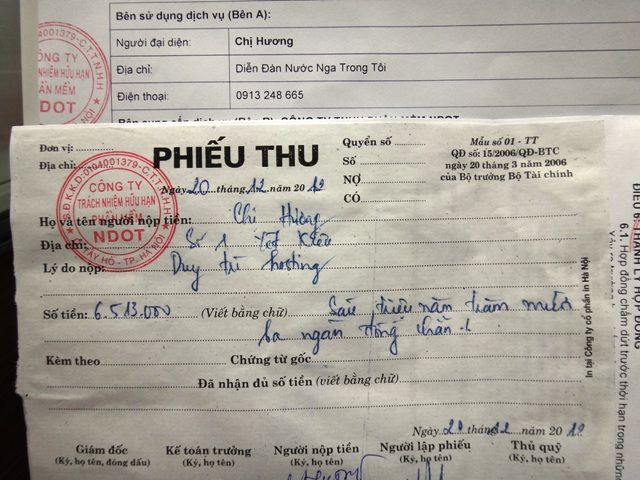 Bên sử dụng dịch vụ (Bên A):
Người đại diện: Chị Hương
Địa chỉ: Diễn Đàn Nước Nga Trong Tôi
Điện thoại: 0913 248 665
Đơn vị:
Địa chỉ:
PHIẾU THU
Ngày 20 tháng 12 năm 2012
Quyển số
Số
NỢ
CÓ
Mẫu số 01 - TT
QĐ số: 15/2006/QĐ-BTC
ngày 20 tháng 3 năm 2006
của Bộ trưởng Bộ Tài chính
CÔNG TY
TRÁCH NHIỆM HỮU HẠN
PHẦN MỀM
NDOT
Họ và tên người nộp tiền: Chị Hương
Địa chỉ: Số 1 Yết Kiêu
Lý do nộp: Duy trì hosting
Số tiền: 6.513.000 (Viết bằng chữ) Sáu triệu năm trăm mười
ba ngàn đồng chẵn ./.
Kèm theo Chứng từ gốc
Đã nhận đủ số tiền (viết bằng chữ)
Ngày 20 tháng 12 năm 2012
Giám đốc Kế toán trưởng Người nộp tiền Người lập phiếu Thủ quỹ
(Ký, họ tên, đóng dấu) (Ký, họ tên) (Ký, họ tên) (Ký, họ tên) (Ký, họ tên)
In tại Công ty cổ phần in Hà Nội
6.1. Hợp đồng chấm dứt trước thời hạn trong